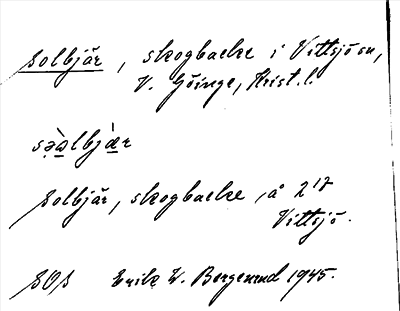 Solbjär, skogbacke i Vittsjö sn,
V. Göinge, Krist. l.
sə̣̀a̲lbjæ̲̀r
Solbjär, skogbacke, å 2 17
Vittsjö.
SOS Erik W. Bergenrud 1945.